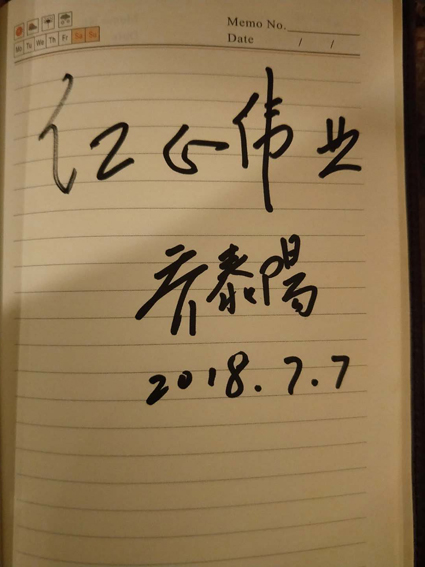 Memo No.
Mo Tu We Th Fr Sa Su
Date / /
红心伟业
齐泰陽
2018.7.7